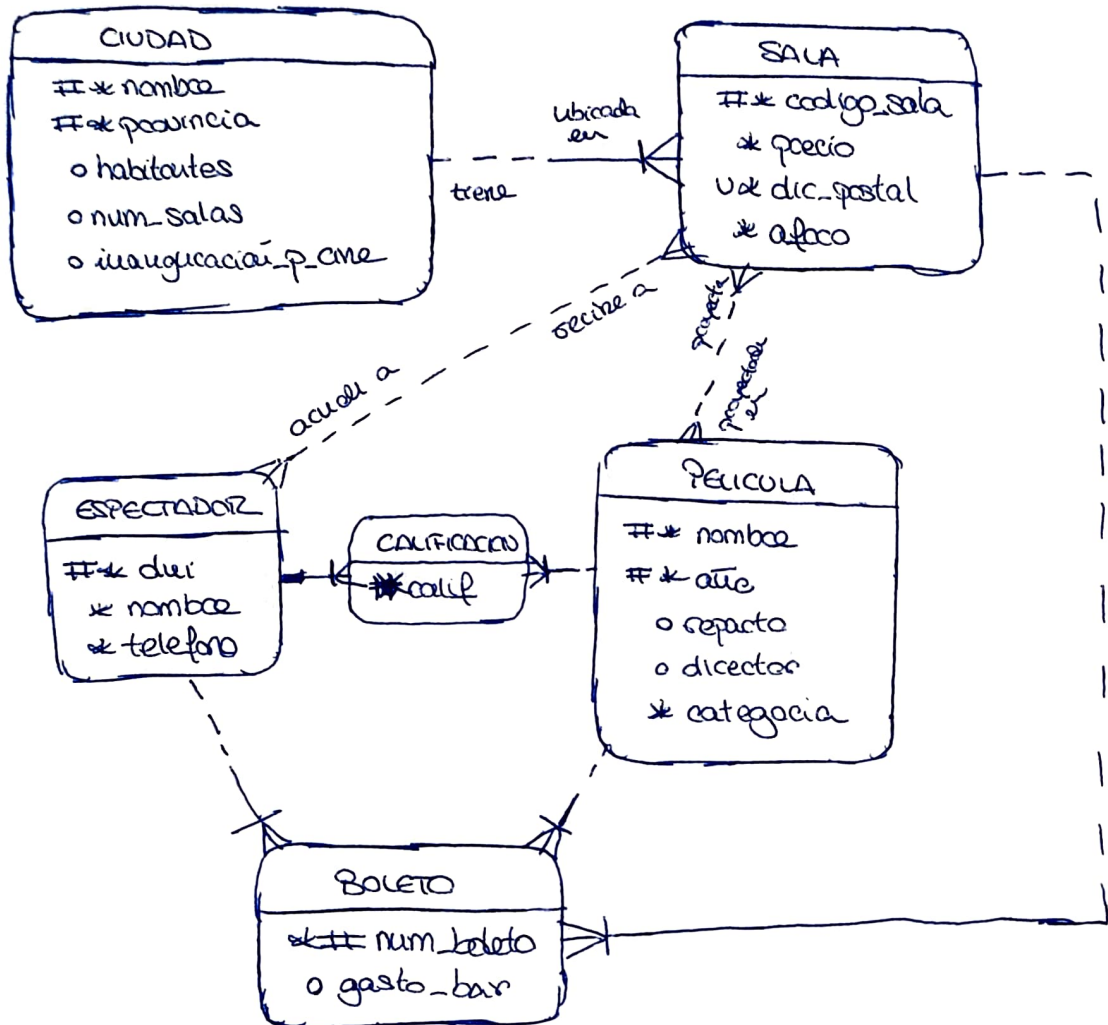 CIUDAD
#* nombre
#* provincia
o habitantes
o num_salas
o inauguración_p_cine
tiene
ubicada
en
SALA
#* codigo_sala
* precio
U* dir_postal
* aforo
acude a
recibe a
proyecta
proyectada
en
ESPECTADOR
#* dui
* nombre
* telefono
CALIFICACION
* calif
PELICULA
#* nombre
#* año
o reparto
o director
* categoria
BOLETO
*# num_boleto
o gasto_bar